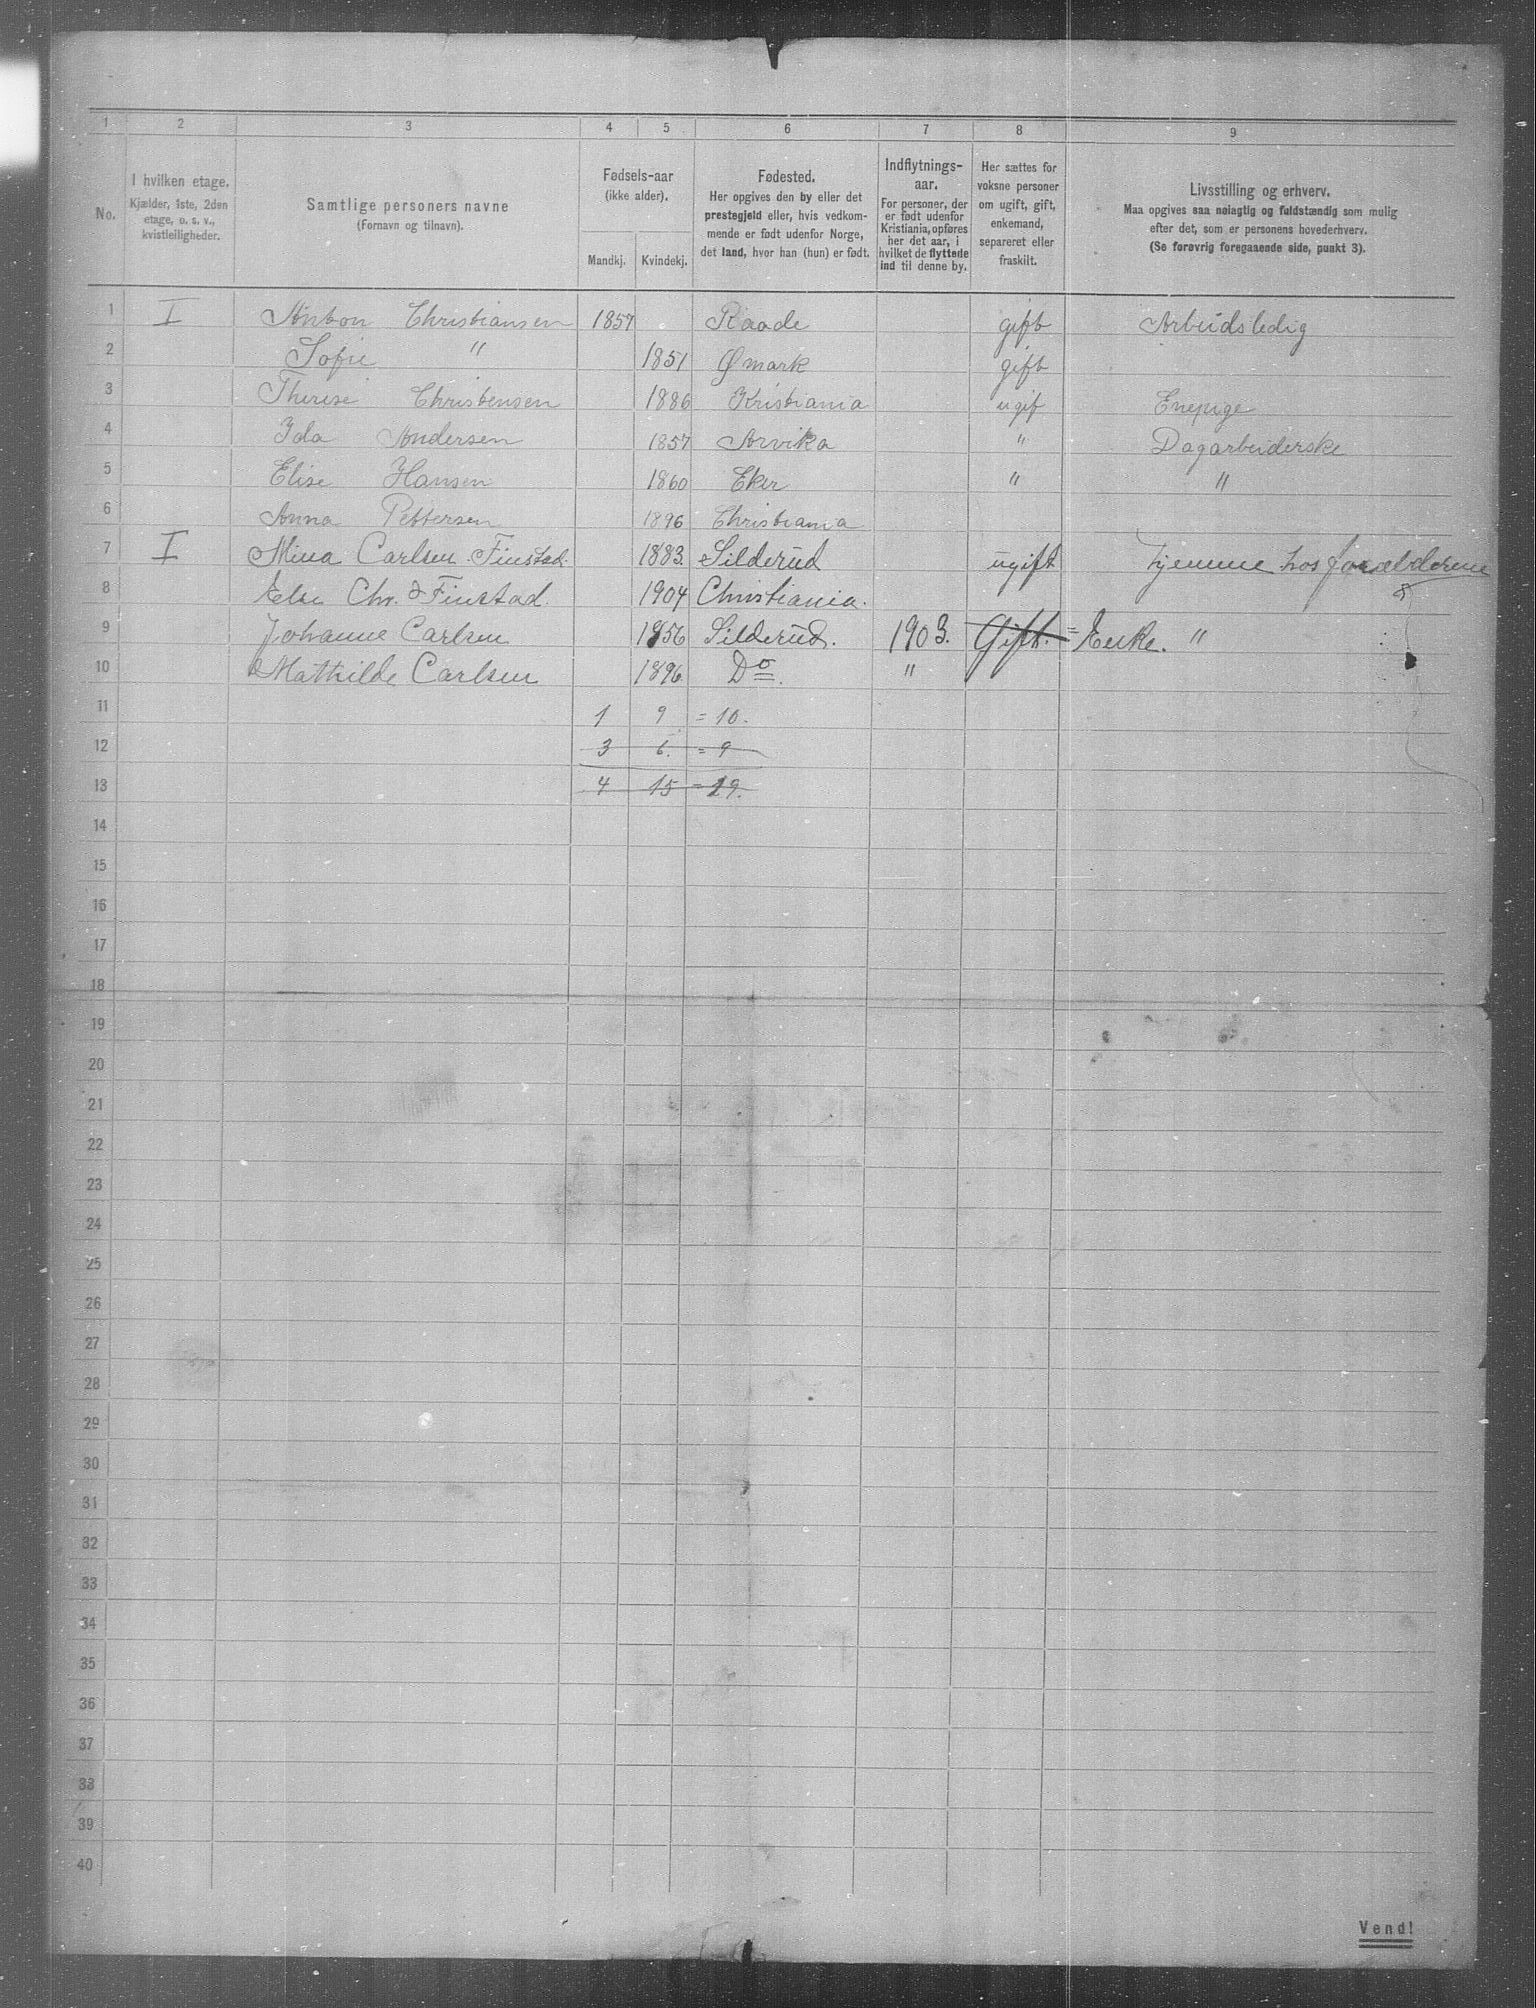 1 2 3 4 5 6 7 8 9
No.
I hvilken etage.
Kjælder, 1ste, 2den
etage, o. s. v.,
kvistleiligheder.
Samtlige personers navne
(Fornavn og tilnavn).
Fødsels-aar
(ikke alder).
Mandkj. Kvindekj.
Fødested.
Her opgives den by eller det
prestegjeld eller, hvis vedkom-
mende er født udenfor Norge,
det land, hvor han (hun) er født.
Indflytnings-
aar.
For personer, der
er født udenfor
Kristiania, opføres
her det aar, i
hvilket de flyttede
ind til denne by.
Her sættes for
voksne personer
om ugift, gift,
enkemand,
separeret eller
fraskilt.
Livsstilling og erhverv.
Maa opgives saa nøiagtig og fuldstændig som mulig
efter det, som er personens hovederhverv.
(Se forøvrig foregaaende side, punkt 3).
1 I Anton Christiansen 1857 Raade gift Arbeidsledig
2 Sofie " 1851 Ømark gift
3 Therese Christensen 1886 Kristiania ugif Enepige
4 Ida Andersen 1857 Arvika " Dagarbeiderske
5 Elise Hansen 1860 Eker " "
6 Anna Pettersen 1896 Christiania
7 I Mina Carlsen Finstad. 1883. Silderud ugift hjemme hos forældrene
8 Else Chr. Finstad. 1904 Christiania.
9 Johanne Carlsen 1856 Silderud. 1903. Gift. = Enke. "
10 Mathilde Carlsen 1896. Do. "
11 1 9 = 10.
12 3 6. = 9
13 4 15 = 19.
14
15
16
17
18
19
20
21
22
23
24
25
26
27
28
29
30
31
32
33
34
35
36
37
38
39
40
Vend!